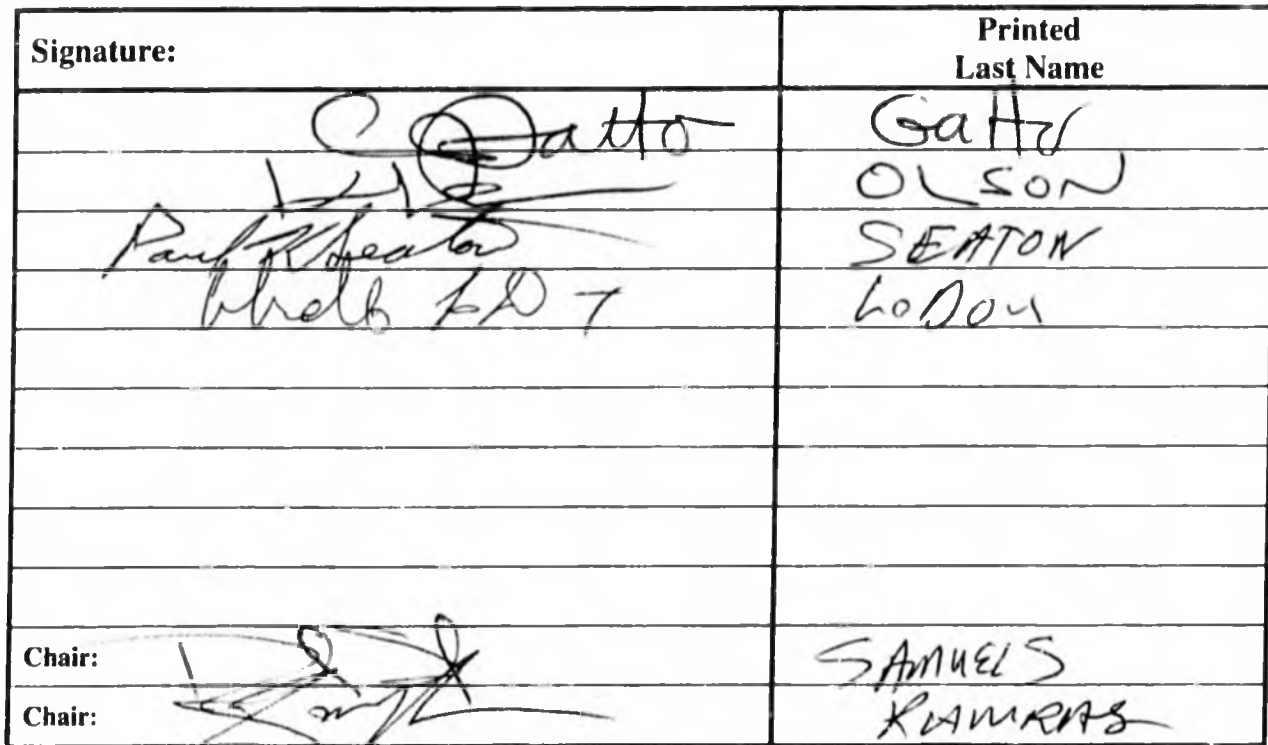 Signature: Printed Last Name
C Gatto Gatto
OLSON
Paul K Seaton SEATON
LoDou
Chair: SAMUELS
Chair: RAMRAS